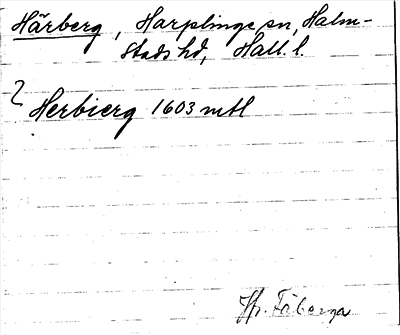 Härberg, Harplinge sn, Halm-
stads hd, Hall. l.
? Herbierg 1603 mtl
Jfr. Fåberga